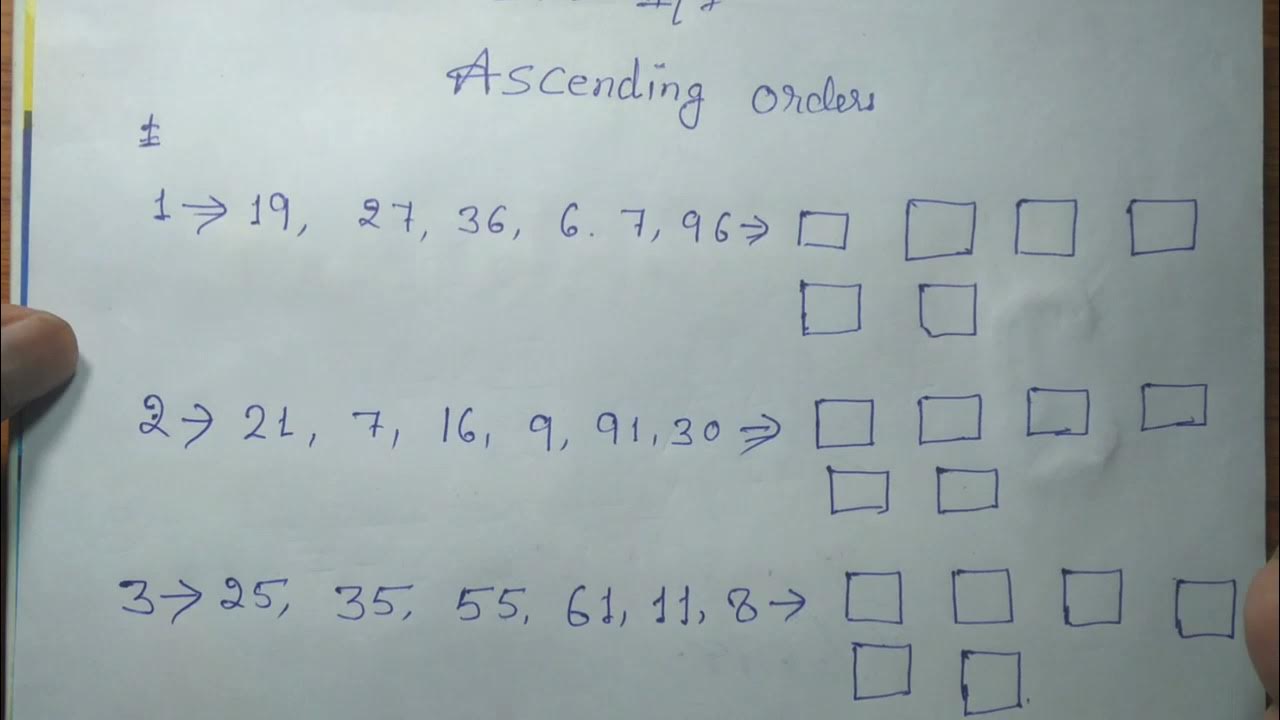 Ascending orders
1
1 → 19, 27, 36, 6. 7, 96 ⇒
2 → 21, 7, 16, 9, 91, 30 ⇒
3 → 25, 35, 55, 61, 11, 8 →